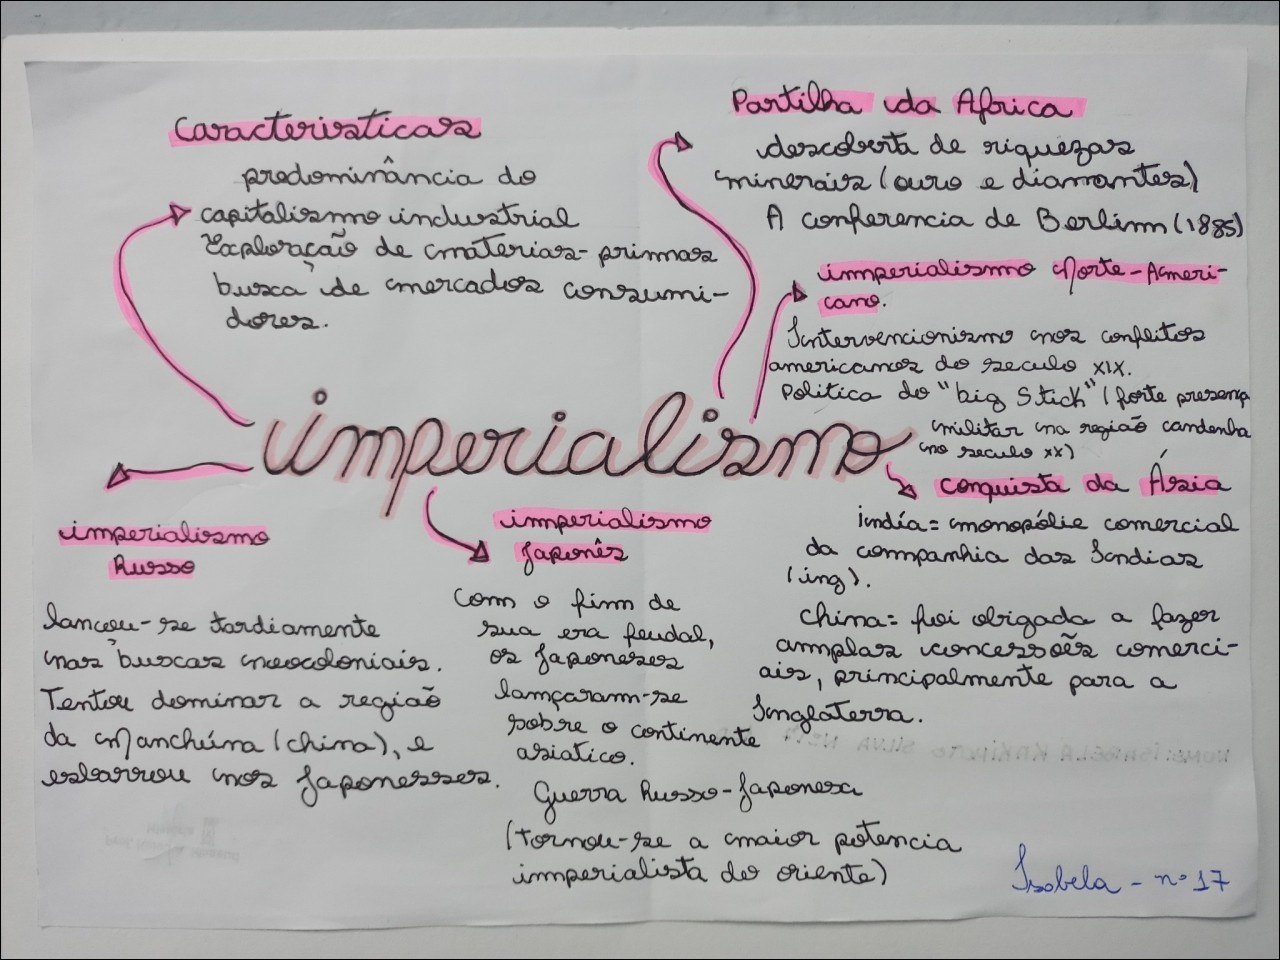 Caracteristicas
predominância do
capitalismo industrial
Exploração de matérias-primas
busca de mercados consumi-
dores.
Partilha da Africa
descoberta de riquezas
minerais (ouro e diamantes)
A conferencia de Berlim (1885)
imperialismo Norte-Ameri-
cano.
Intervencionismo nos conflitos
americanos do seculo XIX.
Politica do "big Stick" (forte presença
militar na região candenha
no seculo XX)
imperialismo
conquista da Ásia
índía = monopólio comercial
da companhia das Índias
(ing).
China = foi obrigada a fazer
amplas concessões comerci-
ais, principalmente para a
Inglaterra.
imperialismo
Japonês
Com o fim de
sua era feudal,
os Japoneses
lançaram-se
sobre o continente
asiatico.
Guerra Russo-Japonesa
(tornou-se a maior potencia
imperialista do oriente)
imperialismo
Russo
lançou-se tardiamente
nas buscas neocoloniais.
Tentou dominar a região
da Manchúria (China), e
esbarrou nos Japonesses.
Isabela - nº 17